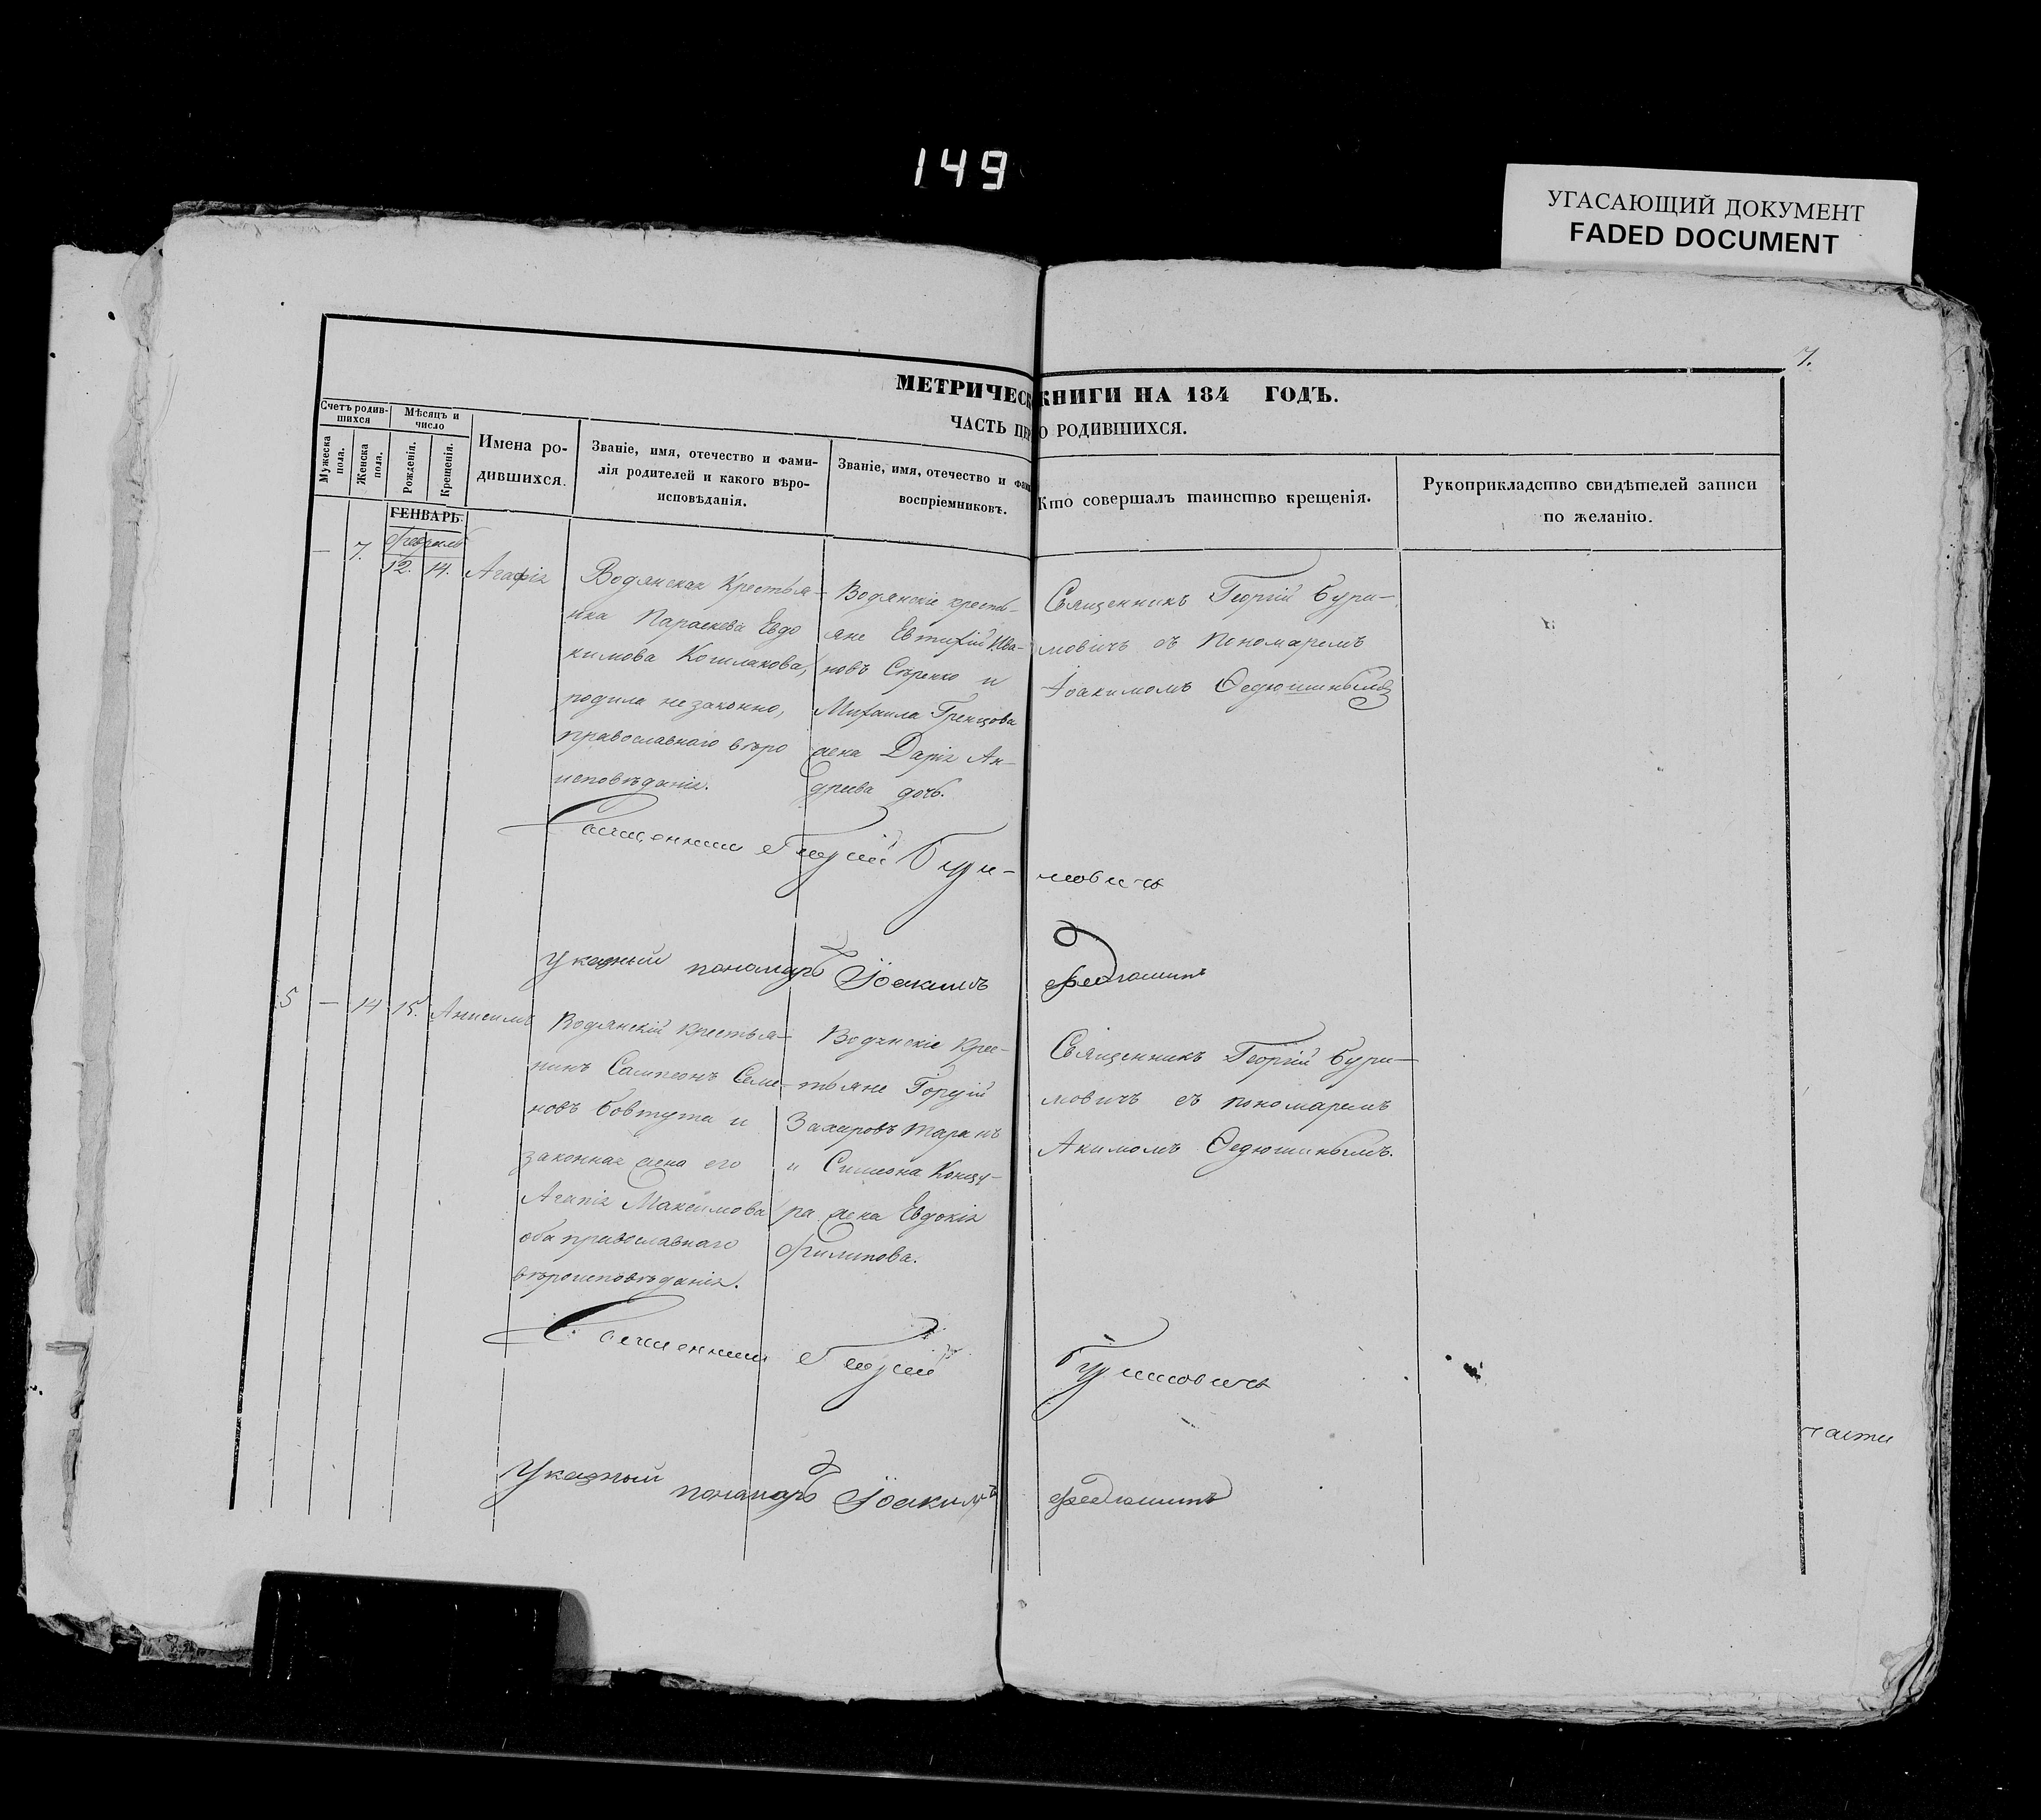 149
УГАСАЮЩИЙ ДОКУМЕНТ
FADED DOCUMENT
7.
МЕТРИЧЕСК КНИГИ НА 184 ГОДЪ.
ЧАСТЬ ПЕР О РОДИВШИХСЯ.
Счетъ родив-
шихся
Мужеска пола.
Женска пола.
Мѣсяцъ и
число
Рожденія.
Крещенія.
Имена ро-
дившихся.
Званіе, имя, отечество и фами-
лія родителей и какого вѣро-
исповѣданія.
Званіе, имя, отечество и фам
воспріемниковъ.
Кто совершалъ таинство крещенія.
Рукоприкладство свидѣтелей записи
по желанію.
ГЕНВАРЬ.
февраль
— 7. 12. 14. Агафія
Водянская Крестья-
нка Параскева Евдо
кимова Кошлакова,
родила незаконно,
православнаго вѣро
исповѣданія.
Водянскіе кресть-
яне Евтихій Ива-
новъ Сѣренко и
Михаила Гренцова
жена Дарія Ан-
дреева дочь.
Священникъ Георгій Бури-
мовичъ съ Пономаремъ
Іоакимомъ Ѳедюшинымъ
Священник Георгій Бури-мовичъ
Указный пономарь Іоакимъ Федюшинъ
5 — 14 15. Анисимъ
Водянскій крестья-
нинъ Сампсонъ Семе-
новъ Бовтута и
законная жена его
Агапія Максимова
оба православнаго
вѣроисповѣданія.
Водянскіе Крес-
тьяне Горгій
Захаровъ Таранъ
и Симеона Конзу-
ра жена Евдокія
Филипова.
Священникъ Георгій Бури-
мовичъ съ пономаремъ
Акимомъ Ѳедюшинымъ.
Священник Георгій Буримовичъ
Указный пономарь Іоакимъ Федюшинъ
части